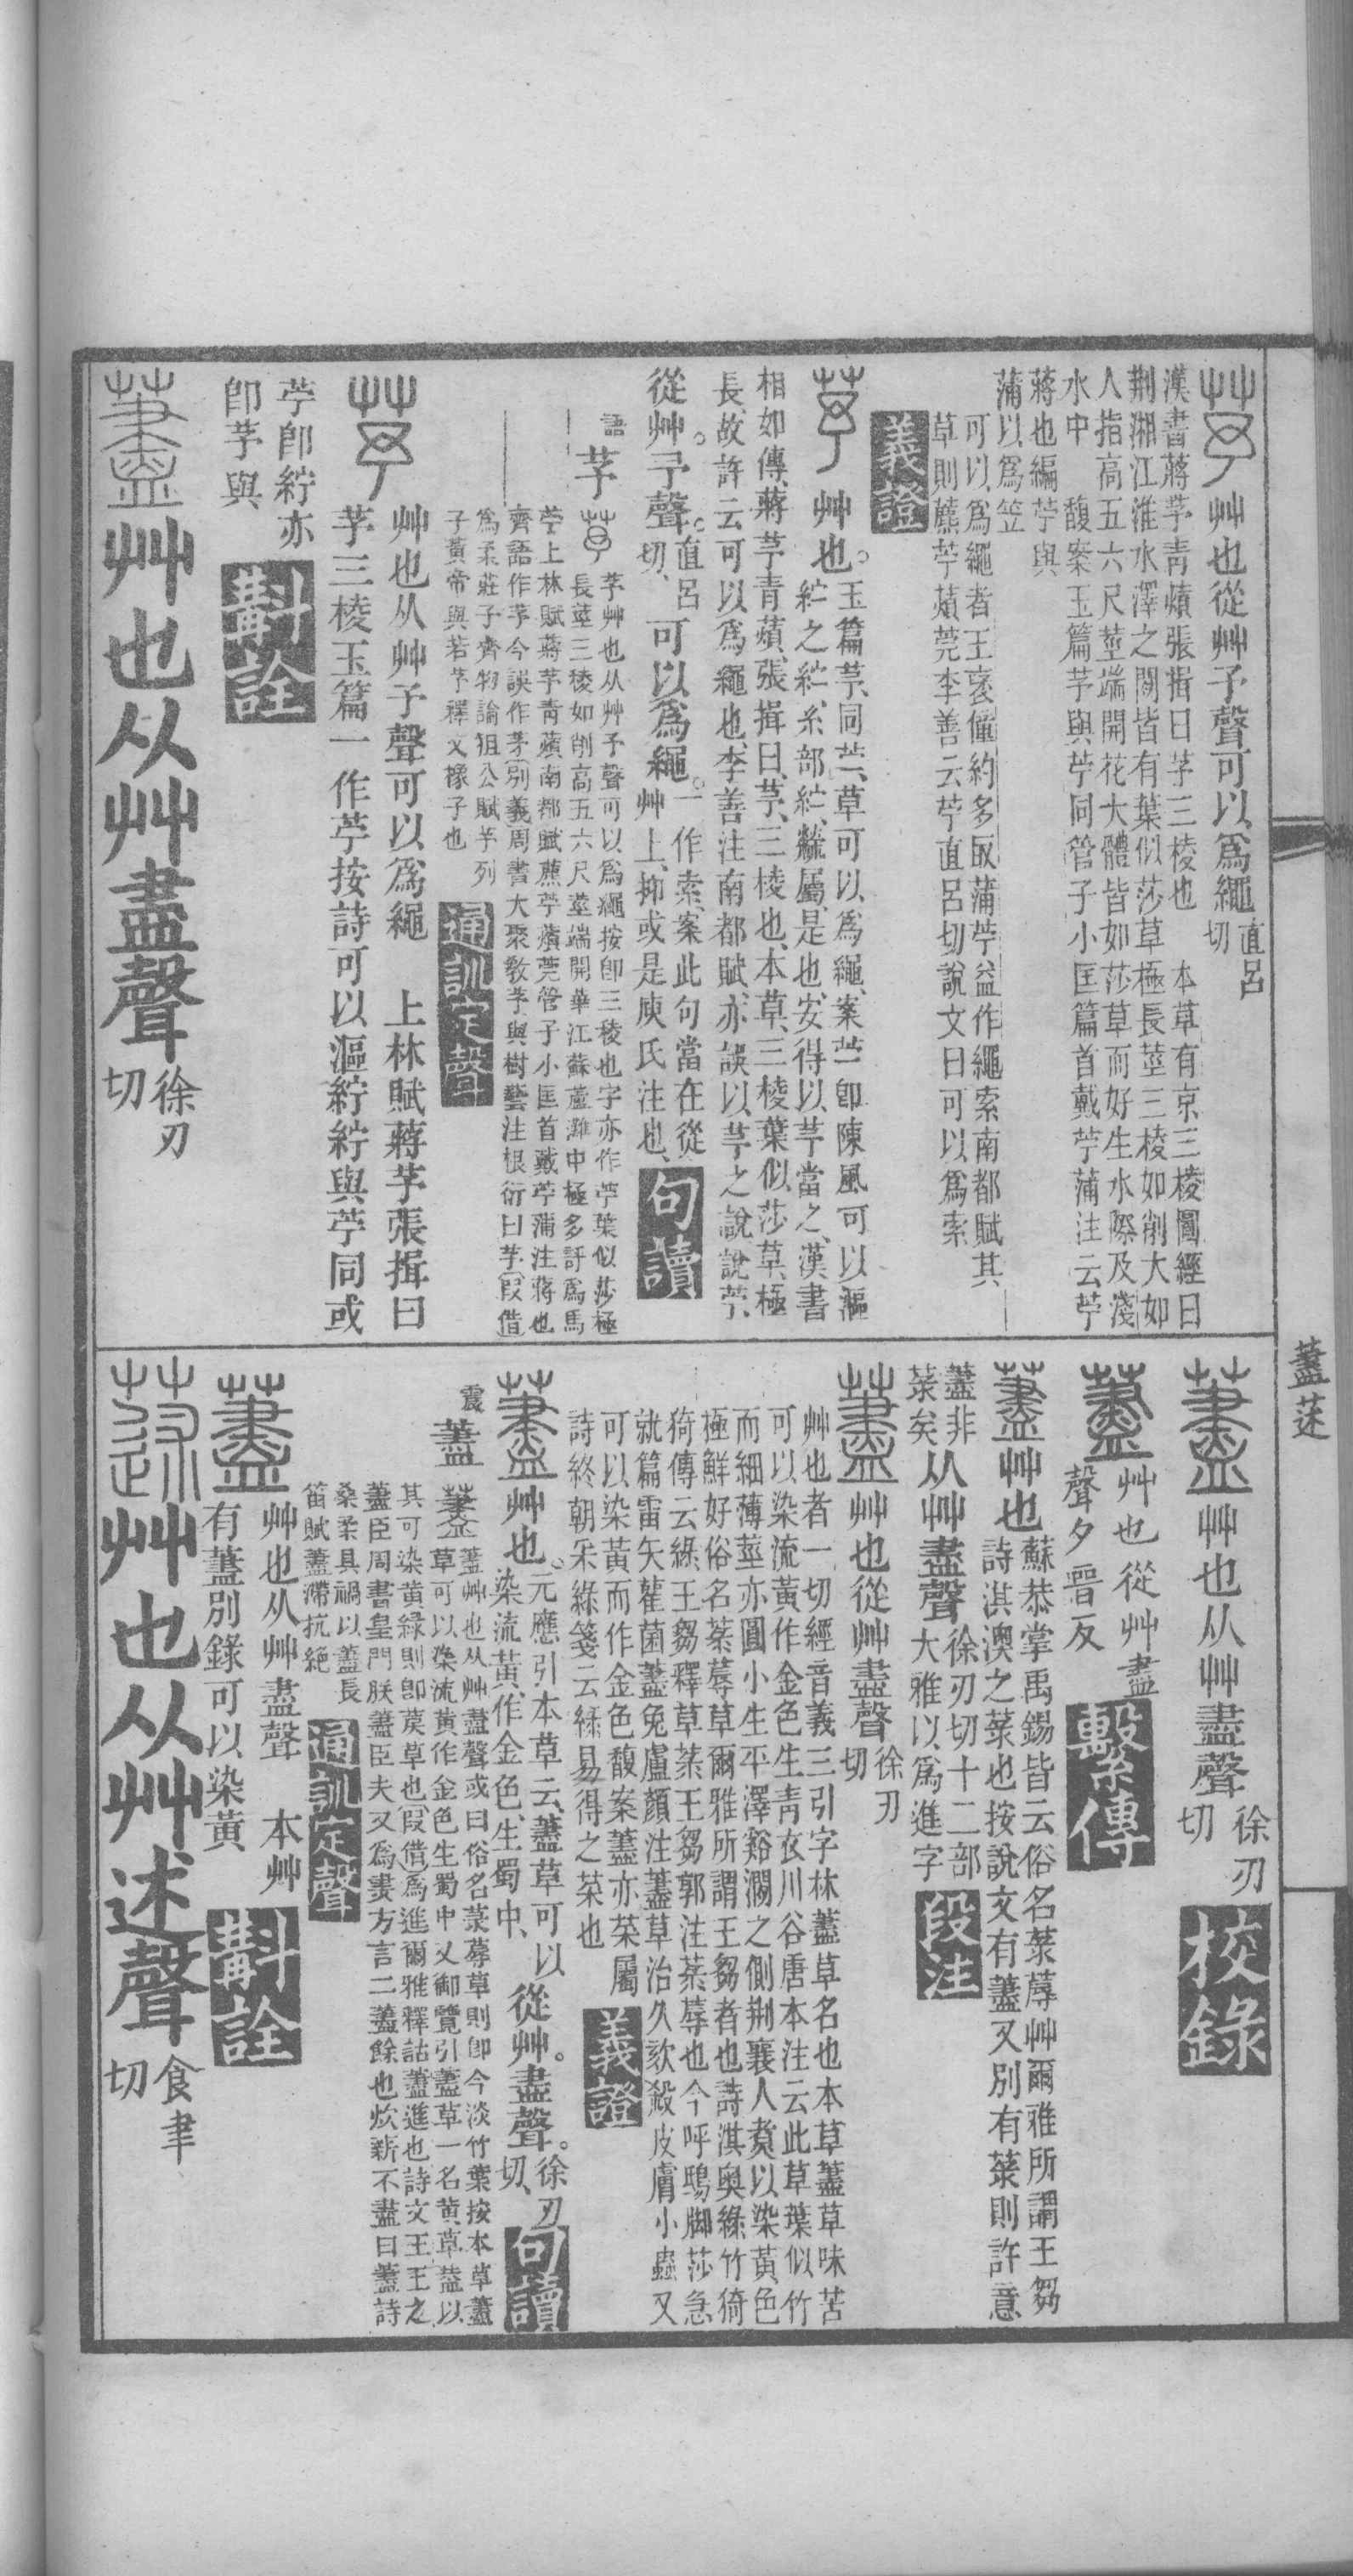 芧艸也從艸予聲可以爲繩直呂切
漢書蔣芧青薠張揖曰芧三棱也　本草有京三棱圖經曰
荆湘江淮水澤之閒皆有葉似莎草極長莖三棱如削大如
人指高五六尺莖端開花大體皆如莎草而好生水際及淺
水中　馥案玉篇芧與苧同管子小匡篇首戴苧蒲注云苧
蔣也編苧與
蒲以爲笠
可以爲繩者王褒僮約多取蒲苧益作繩索南都賦其
草則藨苧薠莞李善云苧直呂切說文曰可以爲索
義證
芧艸也。玉篇芧、同苎、草可以爲繩、案苎卽陳風可以漚
紵之紵、糸部紵、䌖屬是也、安得以芧當之、漢書
相如傳、蔣芧青薠、張揖曰、芧、三棱也、本草、三棱葉似莎草、極
長、故許云可以爲繩也、李善注南都賦、亦誤以芧之說、說苧、
從艸。予聲。直呂切、可以爲繩。一作索、案此句當在從
艸上、抑或是庾氏注也、
句讀
語　芧　芧艸也从艸予聲可以爲繩按卽三稜也字亦作苧葉似莎極
長莖三稜如削高五六尺莖端開華江蘇蘆灘中極多訝爲馬
苧上林賦蔣芧青薠南都賦藨苧薠莞管子小匡首戴苧蒲注蔣也
齊語作茅今誤作茅別義周書大聚敎芧與樹藝注根衍曰芧叚借
爲柔莊子齊物論狙公賦芧列
子黃帝與若芧釋文橡子也
通訓定聲
芧艸也从艸予聲可以爲繩　上林賦蔣芧張揖曰
芧三棱玉篇一作苧按詩可以漚紵紵與苧同或
苧卽紵亦
卽芧與
斠詮
藎艸也从艸盡聲徐刃切
藎艸也从艸盡聲徐刃切
校錄
藎艸也從艸盡
聲夕晉反
繫傳
藎艸也蘇恭掌禹錫皆云俗名菉蓐艸爾雅所謂王芻
詩淇澳之菉也按說文有藎又別有菉則許意
藎非
菉矣从艸盡聲徐刃切十二部
大雅以爲進字
段注
藎艸也從艸盡聲徐刃切
艸也者一切經音義三引字林藎草名也本草藎草味苦
可以染流黃作金色生青衣川谷唐本注云此草葉似竹
而細薄莖亦圓小生平澤谿澗之側荆襄人煑以染黃色
極鮮好俗名菉蓐草爾雅所謂王芻者也詩淇奧綠竹猗
猗傳云綠王芻釋草菉王芻郭注菉蓐也今呼鴟脚莎急
就篇雷矢雚菌藎兔盧顏注藎草治久欬殺皮膚小蟲又
可以染黃而作金色馥案藎亦菉屬
詩終朝采綠箋云綠易得之菜也
義證
藎艸也。元應引本草云、藎草可以
染流黃、作金色、生蜀中、從艸。盡聲。徐刃切、
句讀
震　藎　藎艸也从艸盡聲或曰俗名菉蓐草則卽今淡竹葉按本草藎
草可以染流黃作金色生蜀中又御覽引藎草一名黃草葢以
其可染黃綠則卽莀草也叚借爲進爾雅釋詁藎進也詩文王王之
藎臣周書皇門朕藎臣夫又爲㶳方言二藎餘也炊薪不盡曰藎詩
桑柔具禍以藎長
笛賦藎滯抗絕
通訓定聲
藎艸也从艸盡聲　本艸
有藎別錄可以染黃
斠詮
蒁艸也从艸述聲食聿切
藎蒁